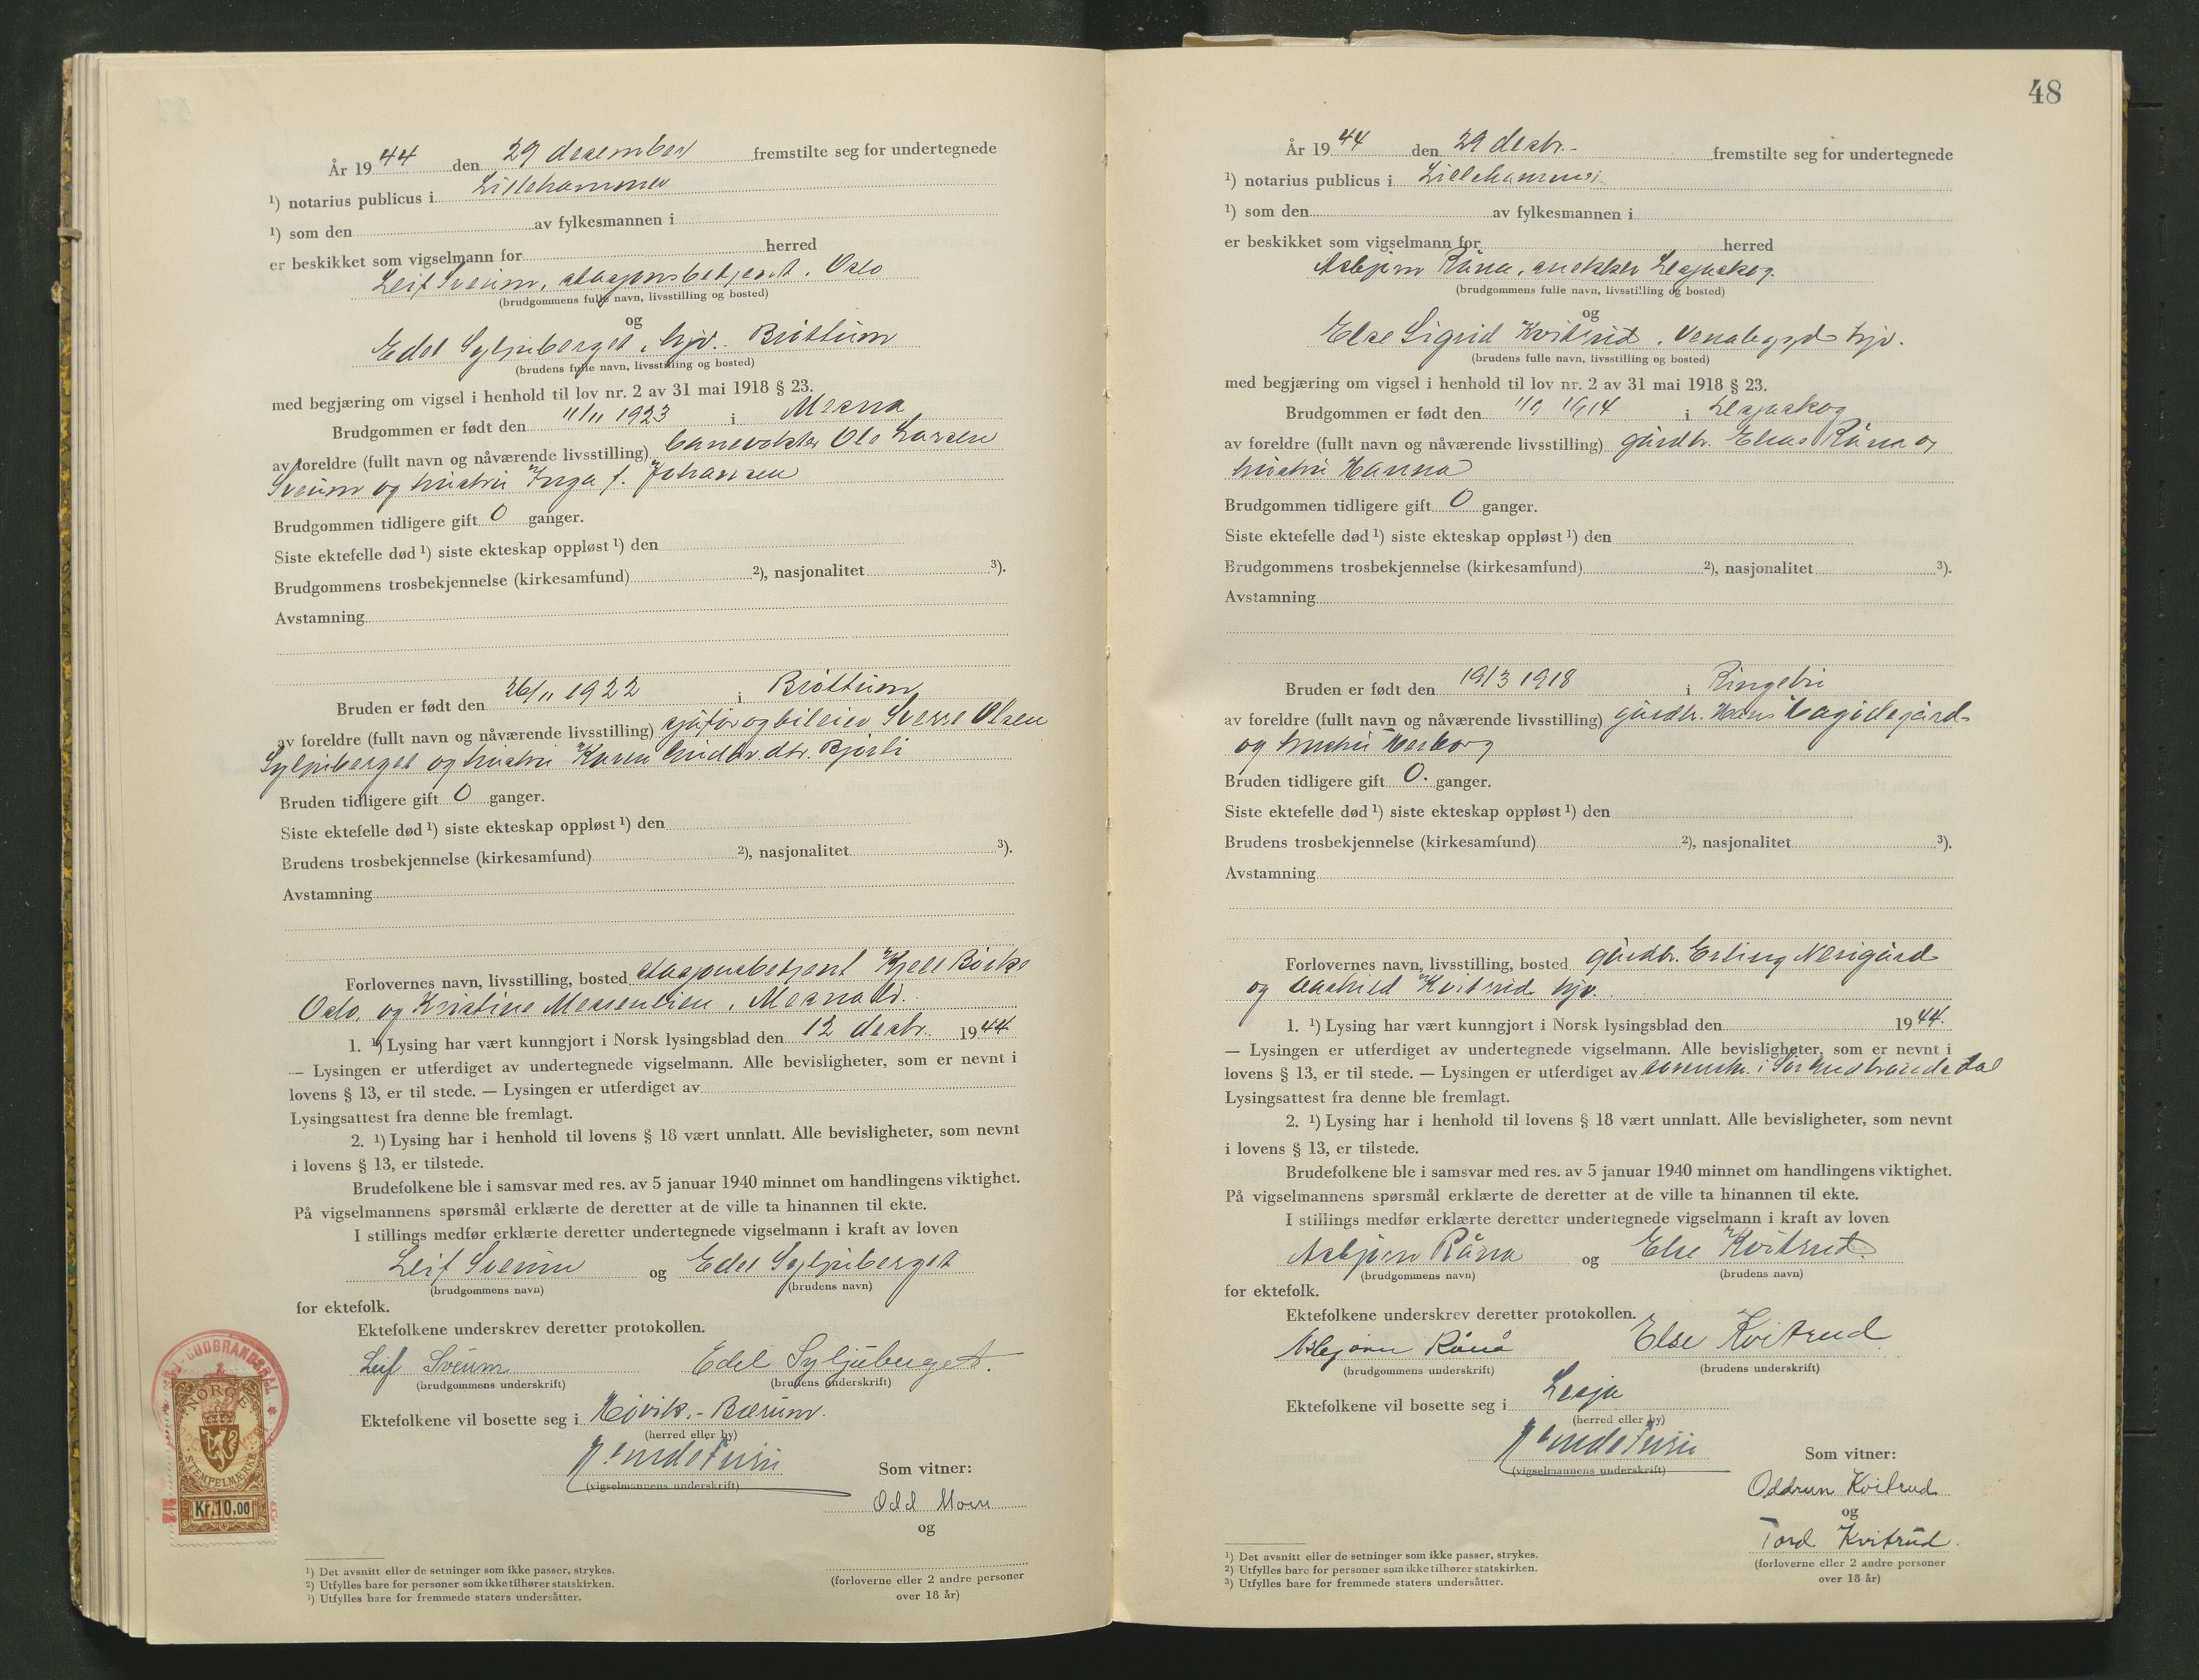 År 1944 den 29 desember fremstilte seg for undertegnede
¹) notarius publicus i Lillehammer
¹) som den av fylkesmannen i
er beskikket som vigselmann for herred
Leif Sveum, stasjonsbetjent. Oslo
(brudgommens fulle navn, livsstilling og bosted)
og
Edel Syljuberget, hjv. Brøttum
(brudens fulle navn, livsstilling og bosted)
med begjæring om vigsel i henhold til lov nr. 2 av 31 mai 1918 § 23.
Brudgommen er født den 11/11 1923 i Mesna
av foreldre (fullt navn og nåværende livsstilling) banevokter Ole Larsen
Sveum og hustru Inga f. Johansen
Brudgommen tidligere gift 0 ganger.
Siste ektefelle død ¹) siste ekteskap oppløst ¹) den
Brudgommens trosbekjennelse (kirkesamfund) ²), nasjonalitet ³).
Avstamning
Bruden er født den 26/11 1922 i Brøttum
av foreldre (fullt navn og nåværende livsstilling) sjåfør og bileier Sverre Olsen
Syljuberget og hustru Karen dtr. Bjørli
Bruden tidligere gift 0 ganger.
Siste ektefelle død ¹) siste ekteskap oppløst ¹) den
Brudens trosbekjennelse (kirkesamfund) ²), nasjonalitet ³).
Avstamning
Forlovernes navn, livsstilling, bosted stasjonsbetjent Kjell Børke
Oslo og Kristine Messenlien, Mesnali.
1. ¹) Lysing har vært kunngjort i Norsk lysingsblad den 12 desbr. 1944
— Lysingen er utferdiget av undertegnede vigselmann. Alle bevisligheter, som er nevnt i
lovens § 13, er til stede. — Lysingen er utferdiget av
Lysingsattest fra denne ble fremlagt.
2. ¹) Lysing har i henhold til lovens § 18 vært unnlatt. Alle bevisligheter, som nevnt
i lovens § 13, er tilstede.
Brudefolkene ble i samsvar med res. av 5 januar 1940 minnet om handlingens viktighet.
På vigselmannens spørsmål erklærte de deretter at de ville ta hinannen til ekte.
I stillings medfør erklærte deretter undertegnede vigselmann i kraft av loven
Leif Sveum og Edel Syljuberget
(brudgommens navn) (brudens navn)
for ektefolk.
Ektefolkene underskrev deretter protokollen.
Leif Sveum Edel Syljuberget.
(brudgommens underskrift) (brudens underskrift)
Ektefolkene vil bosette seg i Høvik. - Bærum.
(herred eller by)
(vigselmannens underskrift)
Som vitner:
Odd Moen
og
(forloverne eller 2 andre personer
over 18 år)
GUDBRANDSDAL
NORGE
STEMPELMÆRKE
Kr.10.00
¹) Det avsnitt eller de setninger som ikke passer, strykes.
²) Utfylles bare for personer som ikke tilhører statskirken.
³) Utfylles bare for fremmede staters undersåtter.
48
År 1944 den 29 desbr. fremstilte seg for undertegnede
¹) notarius publicus i Lillehammer
¹) som den av fylkesmannen i
er beskikket som vigselmann for herred
Asbjørn Råna, snekker Lesjaskog
(brudgommens fulle navn, livsstilling og bosted)
og
Else Sigrid Kvitrud, Venabygd hjv.
(brudens fulle navn, livsstilling og bosted)
med begjæring om vigsel i henhold til lov nr. 2 av 31 mai 1918 § 23.
Brudgommen er født den 1914 i Lesjaskog
av foreldre (fullt navn og nåværende livsstilling) gårdbr. Elias Råna og
hustru Hanna
Brudgommen tidligere gift 0 ganger.
Siste ektefelle død ¹) siste ekteskap oppløst ¹) den
Brudgommens trosbekjennelse (kirkesamfund) ²), nasjonalitet ³).
Avstamning
Bruden er født den 19/3 1918 i Ringebu
av foreldre (fullt navn og nåværende livsstilling) gårdbr. Hans
og hustru Herborg
Bruden tidligere gift 0. ganger.
Siste ektefelle død ¹) siste ekteskap oppløst ¹) den
Brudens trosbekjennelse (kirkesamfund) ²), nasjonalitet ³).
Avstamning
Forlovernes navn, livsstilling, bosted gårdbr. Erling Nerigård
og Kvitrud hjv.
1. ¹) Lysing har vært kunngjort i Norsk lysingsblad den 1944.
— Lysingen er utferdiget av undertegnede vigselmann. Alle bevisligheter, som er nevnt i
lovens § 13, er til stede. — Lysingen er utferdiget av sorenskr. i Sør Gudbrandsdal
Lysingsattest fra denne ble fremlagt.
2. ¹) Lysing har i henhold til lovens § 18 vært unnlatt. Alle bevisligheter, som nevnt
i lovens § 13, er tilstede.
Brudefolkene ble i samsvar med res. av 5 januar 1940 minnet om handlingens viktighet.
På vigselmannens spørsmål erklærte de deretter at de ville ta hinannen til ekte.
I stillings medfør erklærte deretter undertegnede vigselmann i kraft av loven
Asbjørn Råna og Else Kvitrud
(brudgommens navn) (brudens navn)
for ektefolk.
Ektefolkene underskrev deretter protokollen.
Asbjørn Rånå Else Kvitrud
(brudgommens underskrift) (brudens underskrift)
Ektefolkene vil bosette seg i Lesja
(herred eller by)
(vigselmannens underskrift)
Som vitner:
Oddrun Kvitrud
og
Tord Kvitrud.
(forloverne eller 2 andre personer
over 18 år)
¹) Det avsnitt eller de setninger som ikke passer, strykes.
²) Utfylles bare for personer som ikke tilhører statskirken.
³) Utfylles bare for fremmede staters undersåtter.